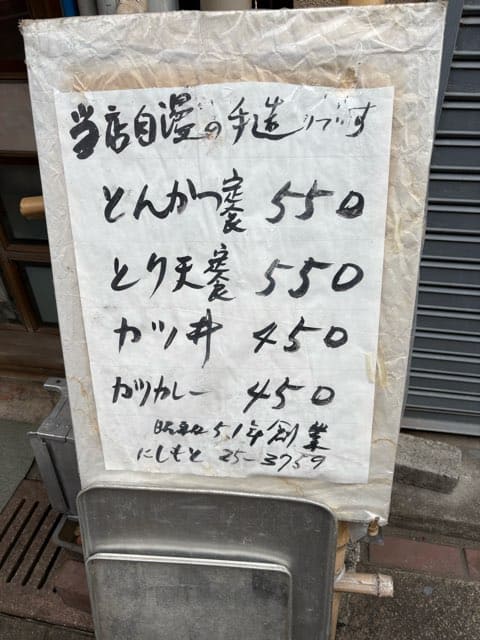 当店自漫の手造りです
とんかつ定食 550
とり天定食 550
カツ丼 450
カツカレー 450
昭和51年創業
にしもと 25-3759